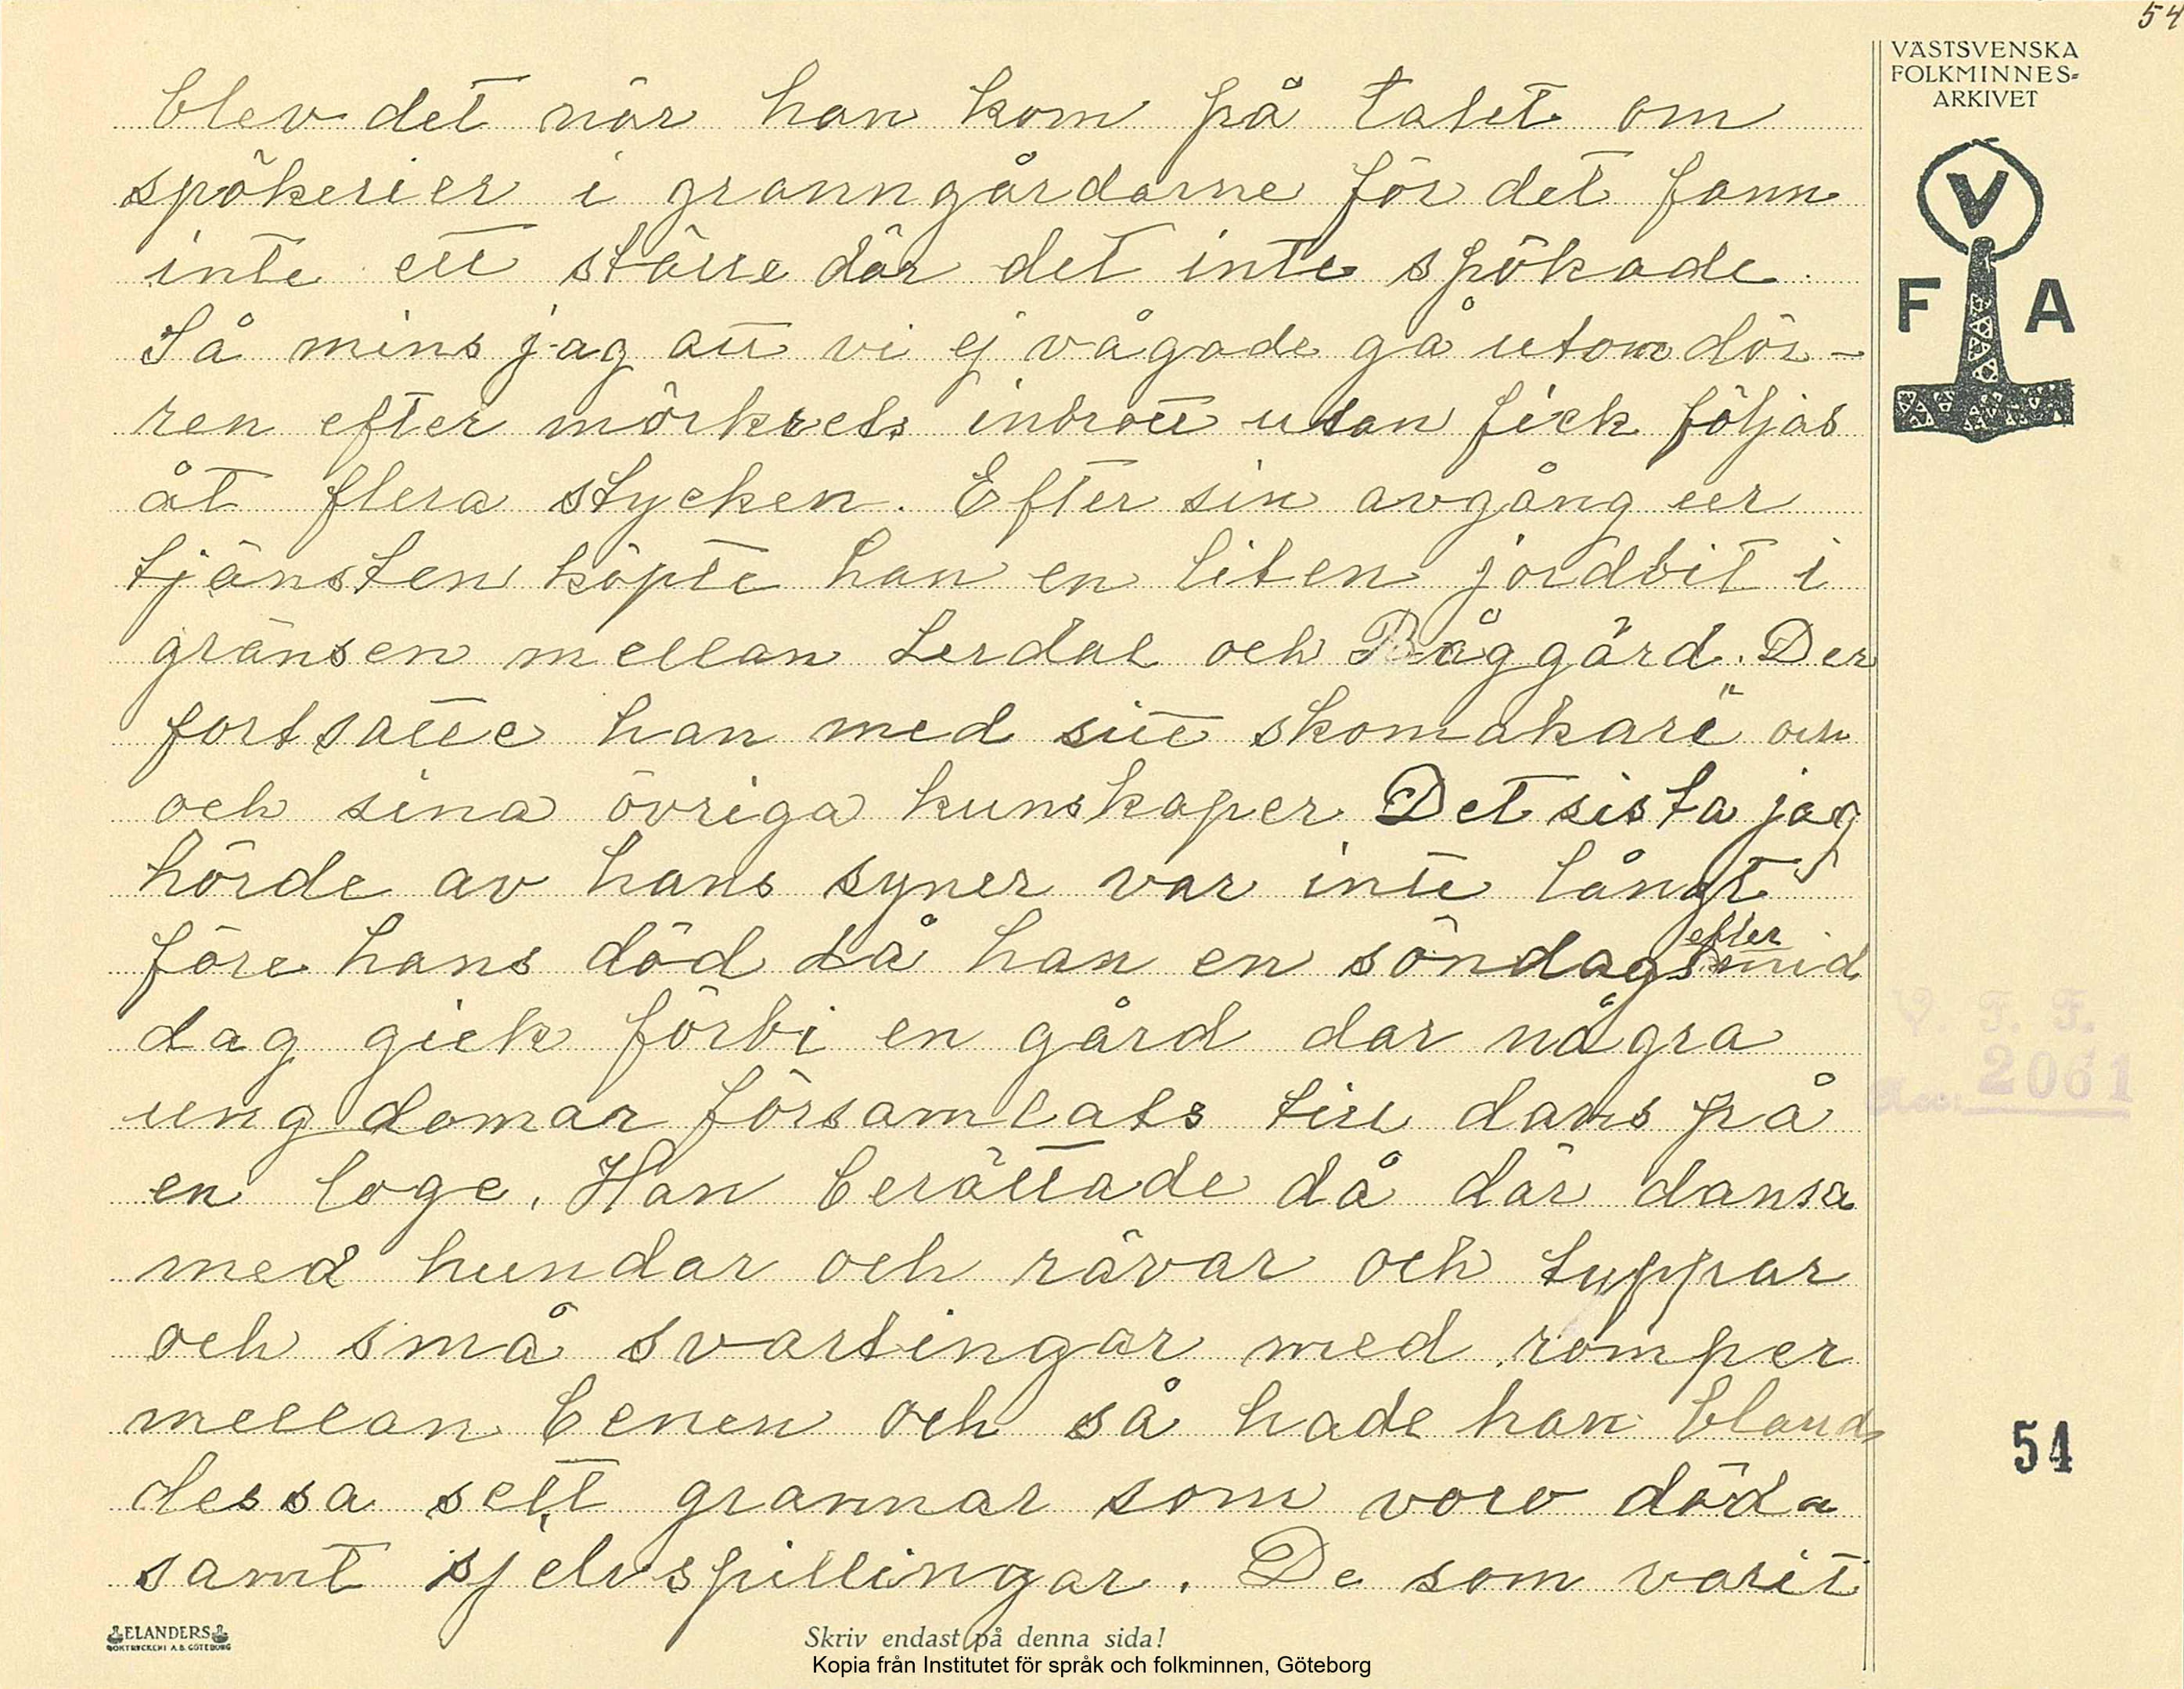 54
VÄSTSVENSKA
FOLKMINNES=
ARKIVET
V
F A
blev det när han kom på talet om
spökerier i granngårdarne för det fann
inte ett ställe där det inte spökade.
Så mins jag att vi ej vågade gå utom dör-
ren efter mörkrets inbrott utan fick följas
åt flera stycken. Efter sin avgång ur
tjänsten köpte han en liten jordbit i
gränsen mellan Lerdal och Råggärd. Der
fortsatte han med sitt skomakare" och
och sina övriga kunskaper Det sista jag
hörde av hans syner var inte långt
före hans död då han en söndags efter mid
dag gick förbi en gård dar några
ungdomar församlats till dans på
en loge. Han berättade då där dansa
med hundar och rävar och tuppar
och små svartingar med romper
mellan benen och så hade han bland
dessa sett grannar som voro döda
samt sjelvspillingar. De som varit
V. F. F.
Acc. 2061
54
ELANDERS
BOKTRYCKERI A.B. GÖTEBORG
Skriv endast på denna sida!
Kopia från Institutet för språk och folkminnen, Göteborg